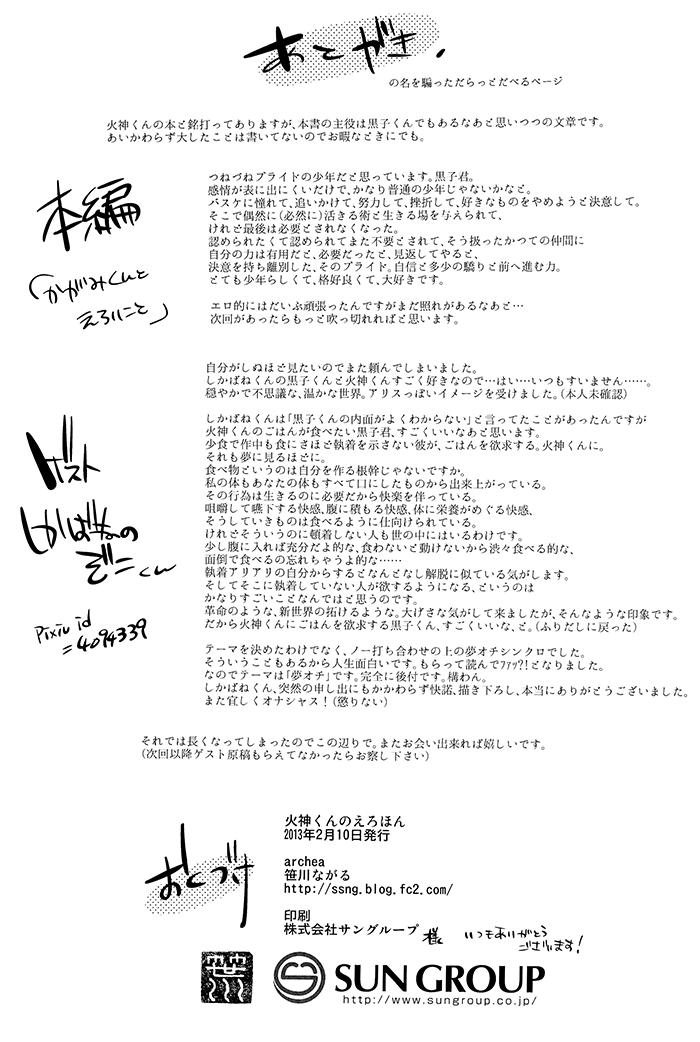 あとがき.
の名を騙っただらっとだべるページ
火神くんの本と銘打ってありますが、本書の主役は黒子くんでもあるなあと思いつつの文章です。
あいかわらず大したことは書いてないのでお暇なときにでも。
本編
「かがみくんと
えろいこと」
つねづねプライドの少年だと思っています。黒子君。
感情が表に出にくいだけで、かなり普通の少年じゃないかなと。
バスケに憧れて、追いかけて、努力して、挫折して、好きなものをやめようと決意して。
そこで偶然に(必然に)活きる術と生きる場を与えられて、
けれど最後は必要とされなくなった。
認められたくて認められてまた不要とされて、そう扱ったかつての仲間に
自分の力は有用だと、必要だったと、見返してやると、
決意を持ち離別した、そのプライド。自信と多少の驕りと前へ進む力。
とても少年らしくて、格好良くて、大好きです。
エロ的にはだいぶ頑張ったんですがまだ照れがあるなあと…
次回があったらもっと吹っ切れればと思います。
ゲスト
しかばねの
ぞこくん
Pixiv id
=4094339
自分がしぬほど見たいのでまた頼んでしまいました。
しかばねくんの黒子くんと火神くんすごく好きなので…はい…いつもすいません……。
穏やかで不思議な、温かな世界。アリスっぽいイメージを受けました。(本人未確認)
しかばねくんは「黒子くんの内面がよくわからない」と言ってたことがあったんですが
火神くんのごはんが食べたい黒子君、すごくいいなあと思います。
少食で作中も食にさほど執着を示さない彼が、ごはんを欲求する。火神くんに。
それも夢に見るほどに。
食べ物というのは自分を作る根幹じゃないですか。
私の体もあなたの体もすべて口にしたものから出来上がっている。
その行為は生きるのに必要だから快楽を伴っている。
咀嚼して嚥下する快感、腹に積もる快感、体に栄養がめぐる快感、
そうしていきものは食べるように仕向けられている。
けれどそういうのに頓着しない人も世の中にはいるわけです。
少し腹に入れば充分だよ的な、食わないと動けないから渋々食べる的な、
面倒で食べるの忘れちゃうよ的な……
執着アリアリの自分からするとなんとなし解脱に似ている気がします。
そしてそこに執着していない人が欲するようになる、というのは
かなりすごいことなんではと思うのです。
革命のような、新世界の拓けるような。大げさな気がして来ましたが、そんなような印象です。
だから火神くんにごはんを欲求する黒子くん、すごくいいな、と。(ふりだしに戻った)
テーマを決めたわけでなく、ノー打ち合わせの上の夢オチシンクロでした。
そういうこともあるから人生面白いです。もらって読んでﾌｧｯ?!となりました。
なのでテーマは「夢オチ」です。完全に後付です。構わん。
しかばねくん、突然の申し出にもかかわらず快諾、描き下ろし、本当にありがとうございました。
また宜しくオナシャス!(懲りない)
それでは長くなってしまったのでこの辺りで。またお会い出来れば嬉しいです。
(次回以降ゲスト原稿もらえてなかったらお察し下さい)
おくづけ
火神くんのえろほん
2013年2月10日発行
archea
笹川ながる
http://ssng.blog.fc2.com/
印刷
株式会社サングループ 様 いつもありがとう
ございます!
SUN GROUP
http://www.sungroup.co.jp/